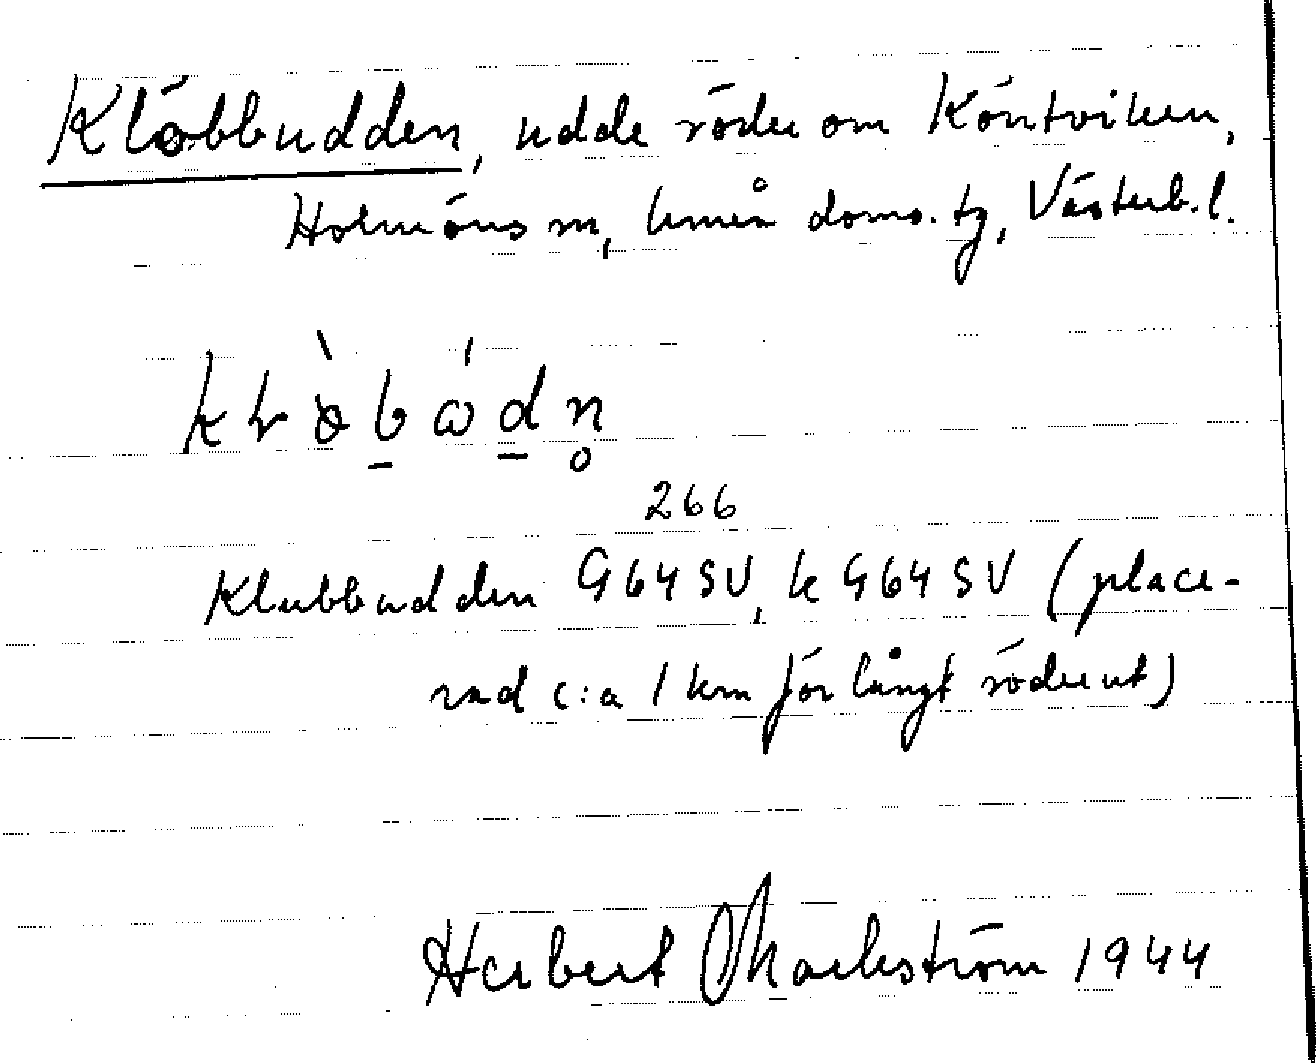 Klöbbudden, udde söder om Köntviken,
Holmöns sn, Umeå doms. tg, Västerb. l.
266
Klubbudden G64SV, k G64SV (place-
rad c:a 1 km för långt söderut)
Herbert Markström 1944